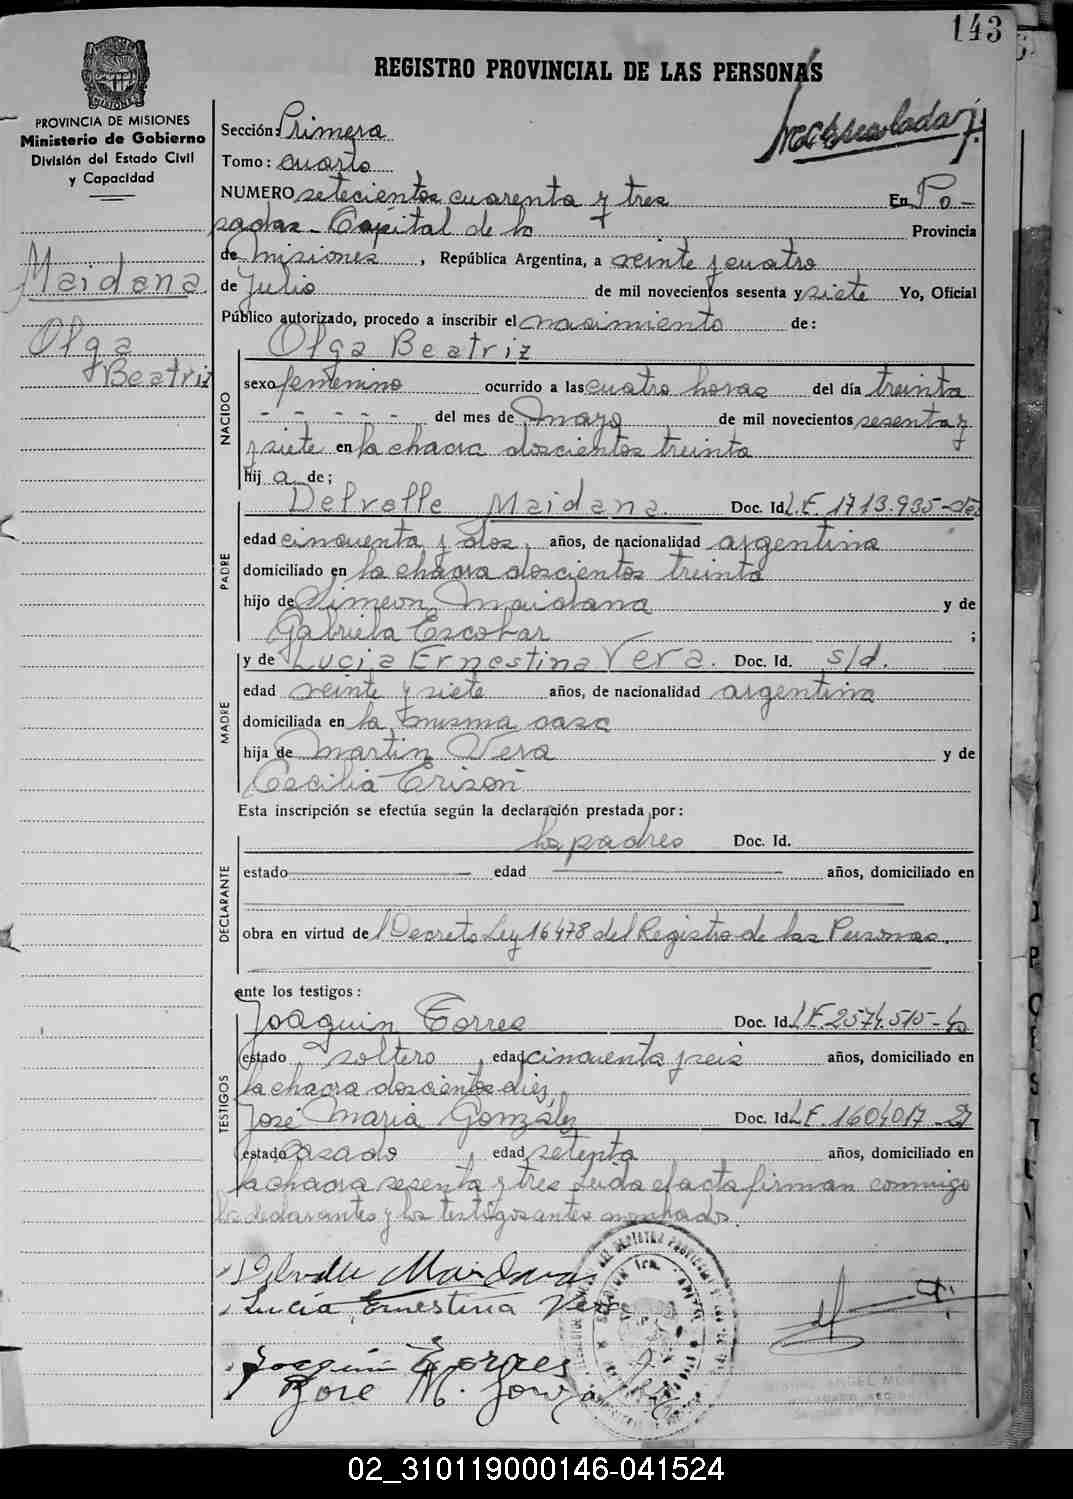 143
REGISTRO PROVINCIAL DE LAS PERSONAS
PROVINCIA DE MISIONES
Ministerio de Gobierno
División del Estado Civil
y Capacidad
Maidana
Olga
Beatriz
Sección: Primera
Tomo: cuarto
NUMERO setecientos cuarenta y tres En Po-
sadas - Capital de la Provincia
de Misiones, República Argentina, a veinte y cuatro
de Julio de mil novecientos sesenta y siete Yo, Oficial
Público autorizado, procedo a inscribir el nacimiento de:
Olga Beatriz
NACIDO
sexo femenino ocurrido a las cuatro horas del día treinta
- - - - - del mes de Mayo de mil novecientos sesenta y
y siete en la chacra doscientos treinta
hij a de;
PADRE
Delvalle Maidana. Doc. Id. L.E. 1713.935
edad cincuenta y dos, años, de nacionalidad argentina
domiciliado en la chacra doscientos treinta
hijo de Simeon Maidana y de
Gabriela Escobar ;
MADRE
y de Lucia Ernestina Vera. Doc. Id. s/d.
edad veinte y siete años, de nacionalidad argentina
domiciliada en la misma casa
hija de Martin Vera y de
Cecilia
Esta inscripción se efectúa según la declaración prestada por:
DECLARANTE
los padres Doc. Id.
estado edad años, domiciliado en
obra en virtud de l Decreto Ley 16478 del Registro de las Personas.
ante los testigos:
TESTIGOS
Joaquin Torres Doc. Id. L.E. 2574.515
estado soltero, edad cincuenta y seis años, domiciliado en
la chacra doscientos diez
José Maria González Doc. Id. L.E. 1604017
estado casado, edad setenta años, domiciliado en
la chacra sesenta y tres Leida el acta firman conmigo
los declarantes y los testigos antes nombrados.
Delvalle Maidana
Lucía Ernestina Vera
Joaquin Torres
Jose M. Gonzalez
02_310119000146-041524